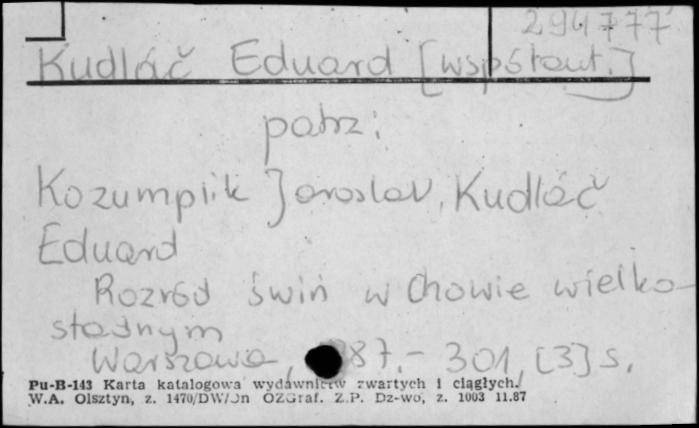 294777
Kudláč Eduard [współaut.]
patrz:
Kozumplik Jaroslav, Kudláč
Eduard
Rozród świń w chowie wielko-
stadnym
Warszawa, 87.- 301, [3] s.
Pu-B-143 Karta katalogowa wydawnictw zwartych i ciągłych.
W.A. Olsztyn, z. 1470/DW/Dn OZGraf. Z.P. Dz-wo, z. 1003 11.87